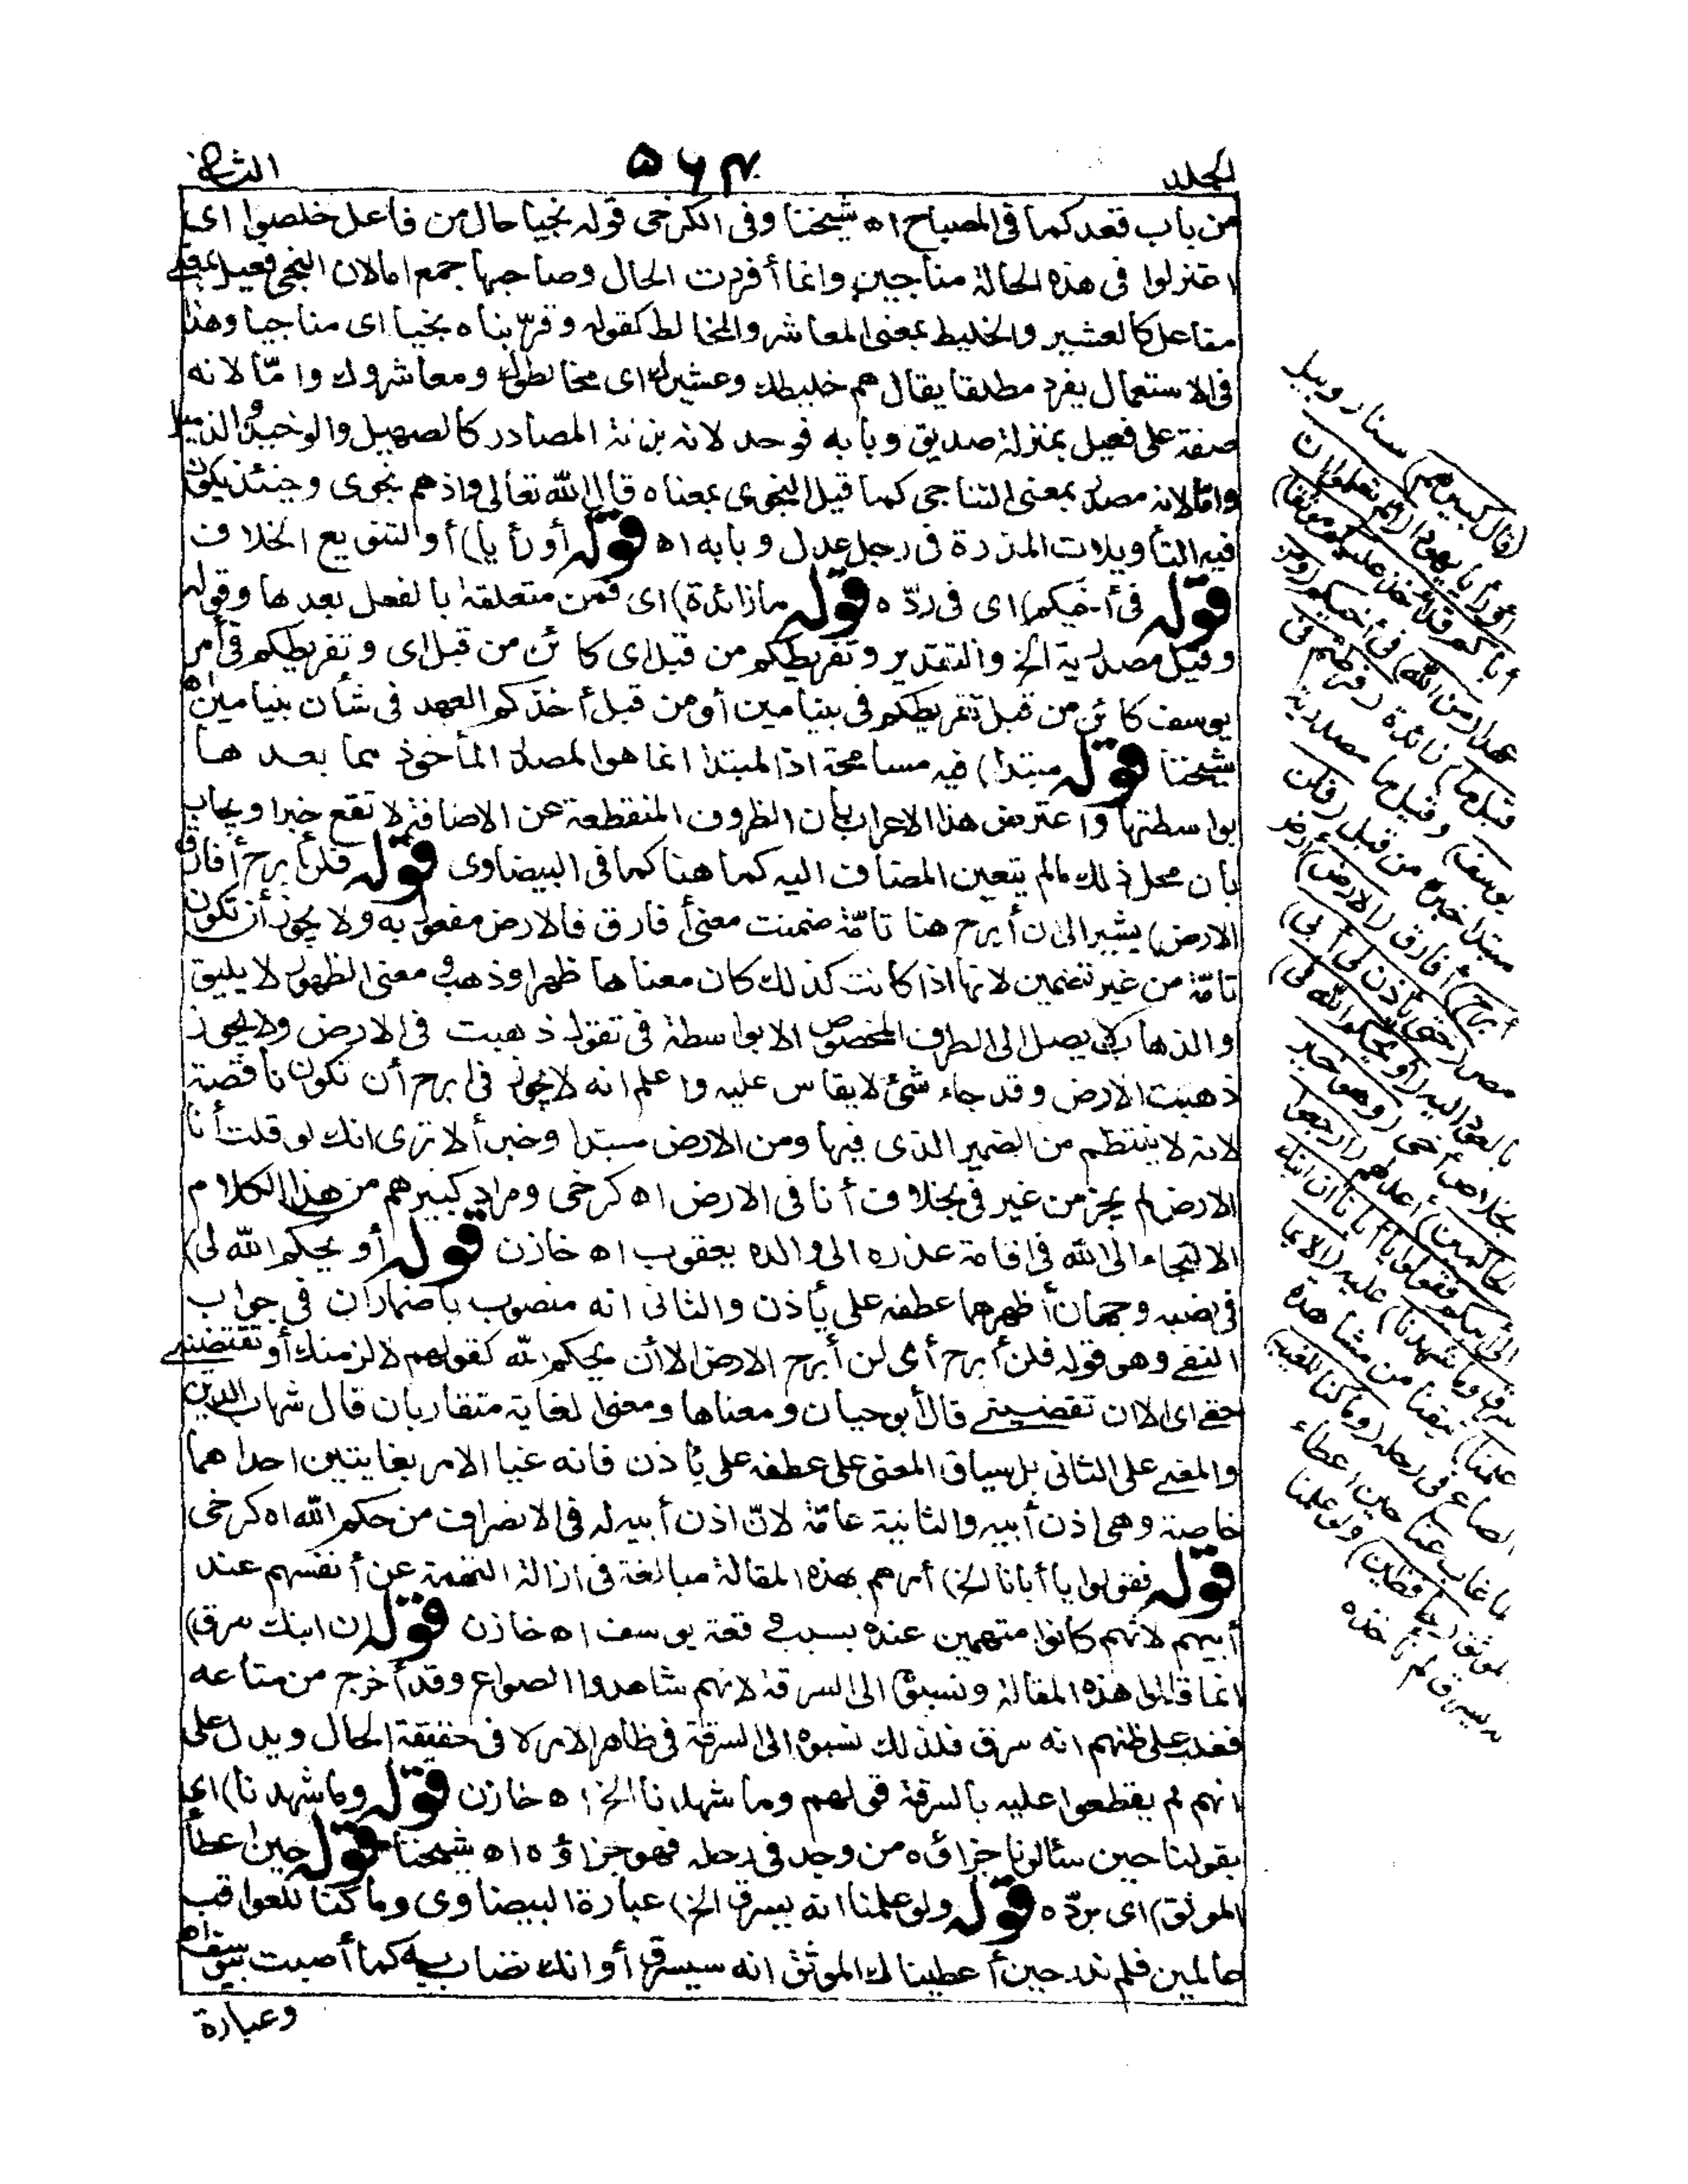 المجلد
٥٦٤
الثانی
من باب قعد كما فى المصباح اه شيخنا وفى الكرخى قوله نجيا حال من فاعل خلصوا اى
اعتزلوا فى هذه الحالة مناجين وانما أفردت الحال وصاحبها جمع امالان النجى فعيل بمعنى
مفاعل كالعشير والخليط بمعنى المعاشر والمخالط كقوله وقربناه نجيا اى مناجيا وهذا
فى الاستعمال يفرد مطلقا يقال هم خليطك وعشيرك اى مخالطوك ومعاشروك وامّا لانه
صفة على فعيل بمنزلة صديق وبابه فوحد لانه بزنة المصادر كالصهيل والوخيد والذميل
وامّا لانه مصدر بمعنى التناجى كما قيل النجوى بمعناه قال الله تعالى واذهم نجوى وحينئذ يكون
فيه التأويلات المذكورة فى رجل عدل وبابه اه قوله أو رأيا) أو لتنويع الخلاف
قوله فى أخيكم) اى فى ردّه قوله ما زائدة) اى فمن متعلقة بالفعل بعدها وقوله
وقيل مصدرية الخ والتقدير وتفريطكم من قبل اى كائن من قبل اى وتفريطكم فى أمر
يوسف كائن من قبل تفريطكم فى بنيامين أو من قبل أخذكم العهد فى شأن بنيامين اه
شيخنا قوله مبتدا) فيه مسامحة اذ المبتدا انما هو المصدر المأخوذ مما بعدها
بواسطتها واعترض هذا الاعراب بأن الظروف المنقطعة عن الاضافة لا تقع خبرا ويجاب
بأن محل ذلك مالم يتعين المضاف اليه كما هنا كما فى البيضاوى قوله فلن أبرح أفارق
الارض) يشير الى ان أبرح هنا تامّة ضمنت معنى أفارق فالارض مفعول به ولا يجوز أن تكون
تامّة من غير تضمين لانها اذا كانت كذلك كان معناها ظهر أو ذهب ومعنى الظهور لا يليق
والذهاب لا يصل الى الظرف المخصوص الا بواسطة فى تقول ذهبت فى الارض ولا يجوز
ذهبت الارض وقد جاء شئ لا يقاس عليه واعلم انه لا يجوز فى ابرح أن تكون ناقصة
لانه لا ينتظم من الضمير الذى فيها ومن الارض مبتدا وخبر ألا ترى انك لو قلت أنا
الارض لم يجز من غير فى بخلاف أنا فى الارض اه كرخى ومراد كبيرهم من هذا الكلام
الالتجاء الى الله فى اقامة عذره الى والده يعقوب اه خازن قوله أو يحكم الله لى)
فى نصبه وجهان أظهرهما عطفه على يأذن والثانى انه منصوب باضمار ان فى جواب
النفى وهو قوله فلن أبرح أى لن أبرح الارض الا أن يحكم الله كقولهم لالزمنك أو تقتضينى
حقى اى الا ان تقضينى قال أبو حيان ومعناها ومعنى الغاية متقاربان قال شهاب الدين
والمعنى على الثانى بل سياق المعنى على عطفه على يأذن فانه غيا الامر بغايتين احداهما
خاصة وهى اذن أبيه والثانية عامّة لانّ اذن أبيه له فى الانصراف من حكم الله اه كرخى
قوله فقولوا يا أبانا الخ) أمرهم بهذه المقالة مبالغة فى ازالة التهمة عن أنفسهم عند
أبيهم لانهم كانوا متهمين عنده بسبب قصة يوسف اه خازن قوله ان ابنك سرق)
انما قالوا هذه المقالة ونسبوه الى السرقة لانهم شاهدوا الصواع وقد أخرج من متاعه
فغلب على ظنهم انه سرق فلذلك نسبوه الى السرقة فى ظاهر الامر لا فى حقيقة الحال ويدل على
انهم لم يقطعوا عليه بالسرقة قولهم وما شهدنا الخ اه خازن قوله وما شهدنا) اى
بقولنا حين سئالونا جزاؤه من وجد فى رحله فهو جزاؤه اه شيخنا قوله حين اعطاء
الموثق) اى بردّه قوله ولو علمنا انه يسرق الخ) عبارة البيضاوى وما كنا للعواقب
عالمين فلم ندر حين أعطيناك الموثق انه سيسرق أو انك تصاب به كما أصبت بيوسف اه
وعبارة
(قال كبيرهم) سنا روبيل
أو رأيا يهودا (ألم تعلموا أن
أباكم قد أخذ عليكم موثقا)
عهدا (من الله) فى أخيكم (ومن
قبل ما) زائدة (فرطتم فى
يوسف) وقيل ما مصدرية
مبتدا خبره من قبل (فلن
أبرح) أفارق (الارض) أرض
مصر (حتى يأذن لى أبى)
بالعود اليه (أو يحكم الله لى)
بخلاص أخى (وهو خير
الحاكمين) أعدلهم (ارجعوا
الى أبيكم فقولوا يا أبانا ان ابنك
سرق وما شهدنا) عليه (الا بما
علمنا) تيقنا من مشاهدة
الصاع فى رحله (وما كنا للغيب)
لما غاب عنا حين اعطاء
الموثق (حافظين) ولو علمنا
انه يسرق لم نأخذه